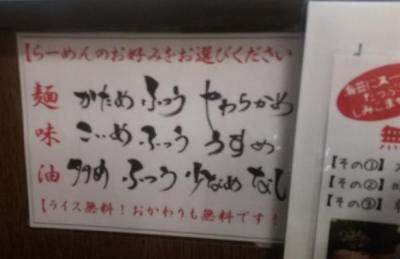 【らーめんのお好みをお選びください
麺 かため ふつう やわらかめ
味 こいめ ふつう うすめ
油 多め ふつう 少なめ なし
【ライス無料!おかわりも無料です!
海苔にスー
たっぷ
しみこま
無
【その①】
【その②】
【その③】